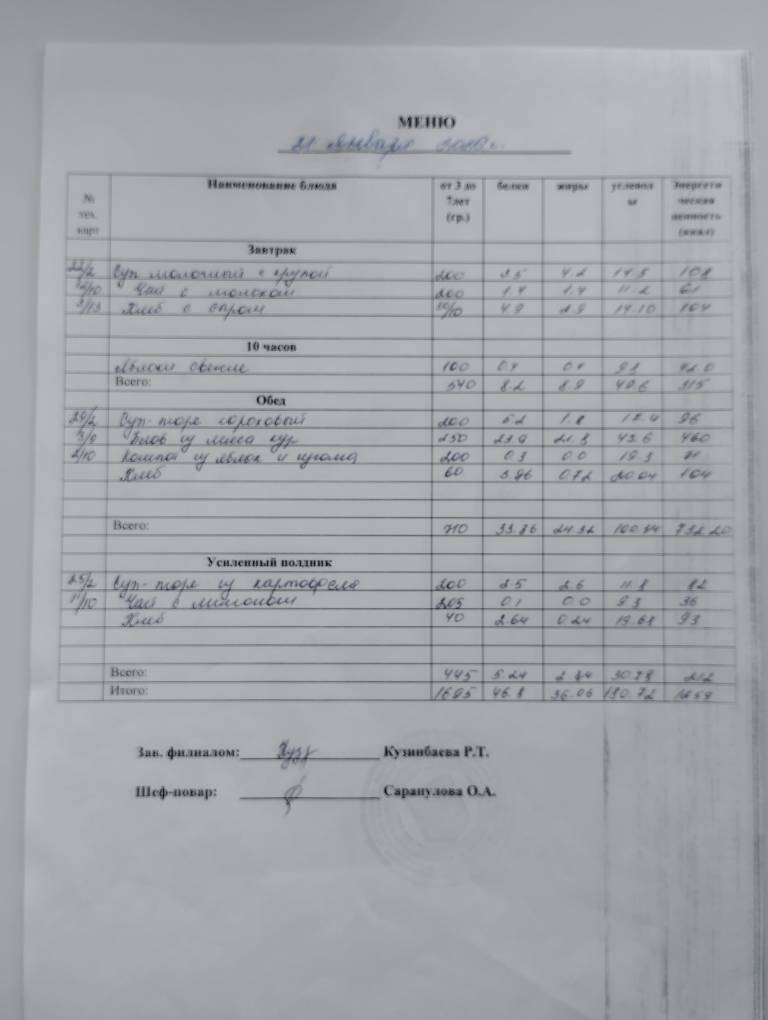 МЕНЮ
21 января
№ тех. карт Наименование блюда от 3 до 7лет (гр.) белки жиры углеводы Энергетическая ценность (ккал)
Завтрак
22/2 Суп молочный с крупой 200 5.5 4.2 14.5 108
Чай с молоком 200 1.4 1.4 11.2 61
3/13 Хлеб с сыром 4.9 2.9 14.10 104
10 часов
Яблоки свежие 100 0.4 0.4 42.0
Всего: 540 8.2 8.9 49.6 315
Обед
Суп-пюре гороховый 200 96
Плов из мяса кур 250 21.3 43.6 460
2/10 Компот из яблок и изюма 200 0.3 0.0 19.3
Хлеб 60 3.96 0.72 20.04 104
Всего: 710 24.32 732.20
Усиленный полдник
25/2 Суп-пюре из картофеля 200 2.5 2.6 82
11/10 Чай с лимоном 205 0.1 0.0 9.3 36
Хлеб 40 2.64 0.24 93
Всего: 445 5.24 212
Итого: 1695 46.8 36.06 1259
Зав. филиалом: Кузинбаева Р.Т.
Шеф-повар: Сарапулова О.А.